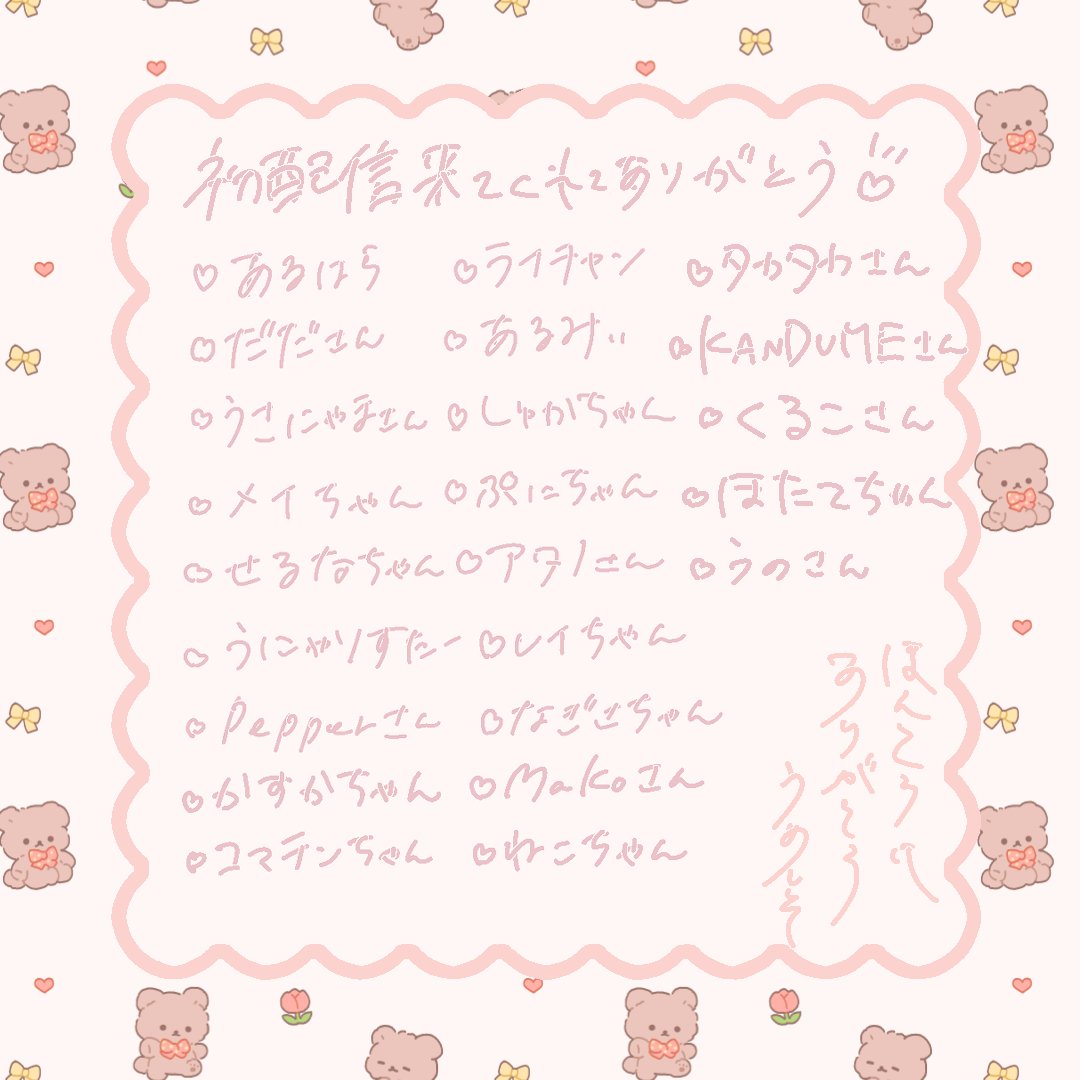 初配信来てくれてありがとう
♡あるはら ♡ライチャン ♡タカタカさん
♡だださん ♡あるみぃ ♡KANDUMEさん
♡うさにゃまさん ♡しゅがちゃん ♡くるこさん
♡メイちゃん ♡ぷにちゃん ♡ほたてちゃん
♡せるなちゃん ♡アワノさん ♡うのさん
♡うにゃりすたー ♡レイちゃん
♡Pepperさん ♡なぎさちゃん
♡かすかちゃん ♡Makoさん
♡コマチンちゃん ♡ねこちゃん
ほんとうに
ありがとう
うめしそ